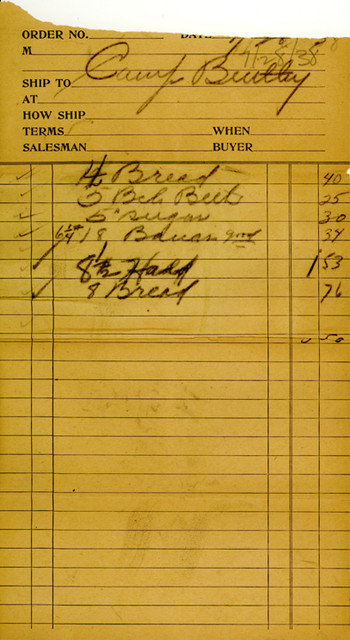 ORDER NO. DATE 7/28/38
M Camp Bentley
SHIP TO
AT
HOW SHIP
TERMS WHEN
SALESMAN BUYER
4 Bread 40
5 Bch Beets 25
5# Sugar 30
18 Banan good 39
8½ 1 53
8 Bread 76